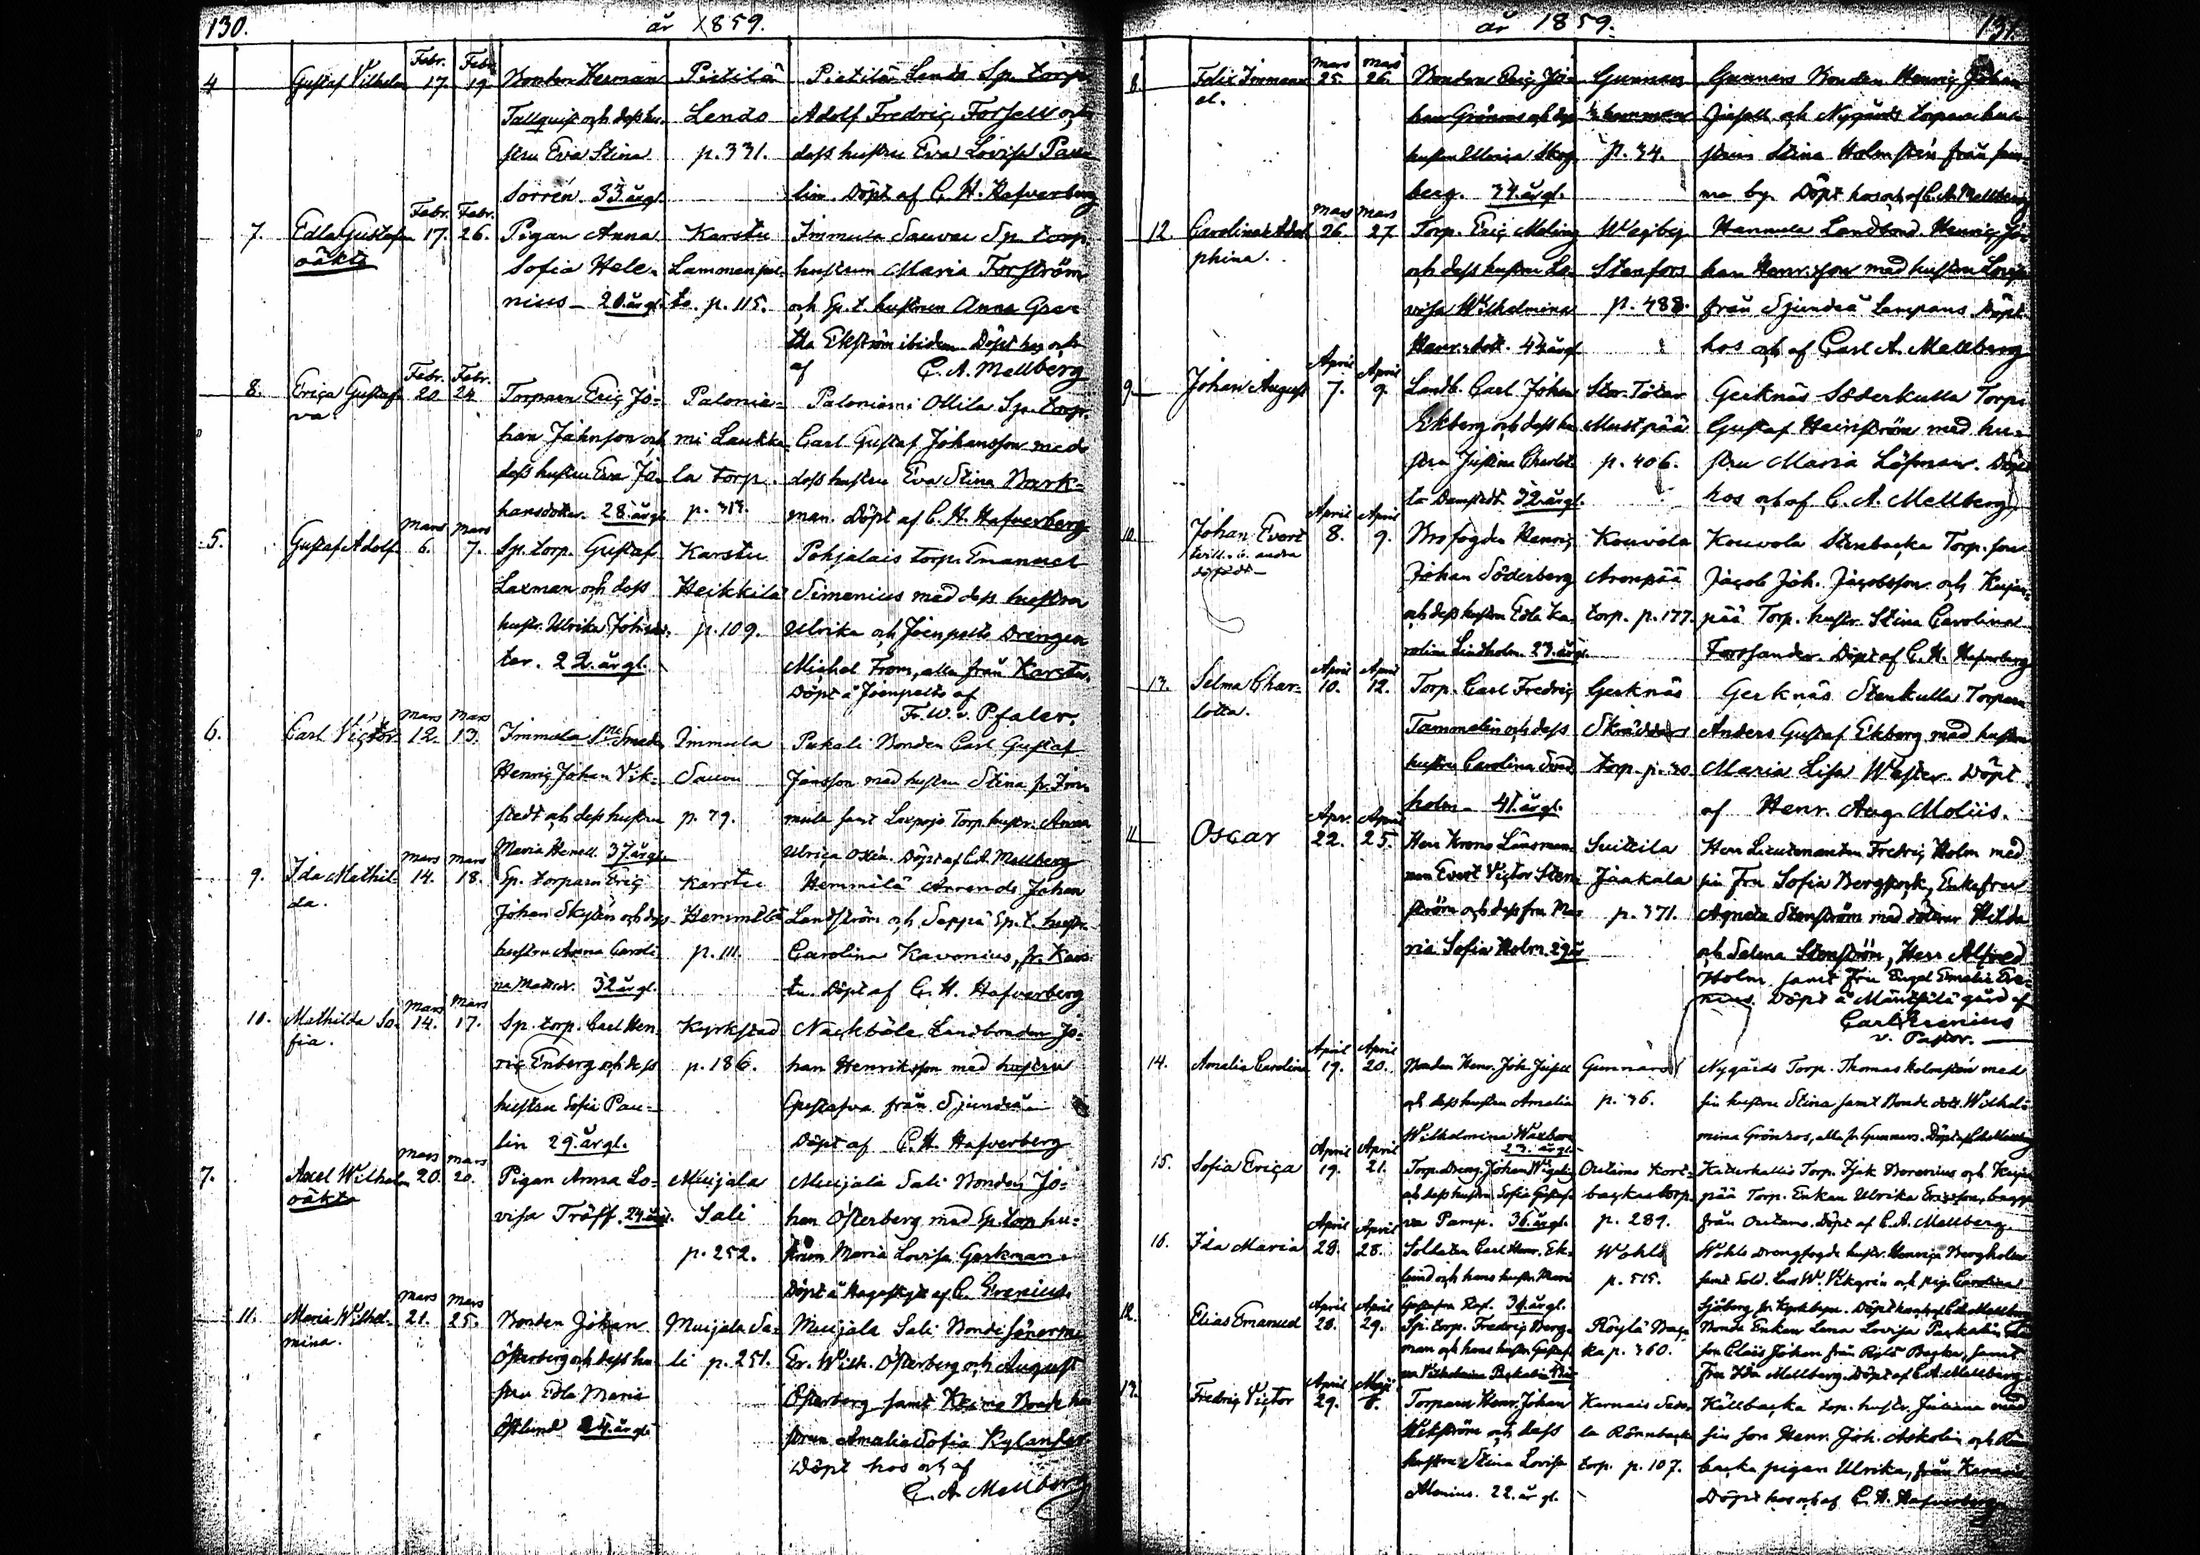 130.
år 1859.
4
Gustaf Vilhelm
Febr. 17.
Febr. 19.
Bonden Herman
Tallquist och dess hu-
stru Eva Stina
Sorrén. 33 år gl.
Pietilä
Lends
p. 331.
Pietilä Lends Sp. torp.
Adolf Fredric Forsell och
dess hustru Eva Lovisa Pau-
lin. Döpt af C. H. Hafverberg
7.
Edla Gustafva
oäkta
Febr. 17.
Febr. 26.
Pigan Anna
Sofia Hele-
nius - 20 år gl.
Karstu
p. 115.
Immula Sauvu Sp. torp.
hustrun Maria Forström
och Sp. t. hustrun Anna Gre-
tha Ekström ibidem Döpt hos och
af C. A. Mellberg
8.
Erica Gustaf-
va.
Febr. 20
Febr. 24
Torparen Eric Jo-
han Johnsson och
dess hustru Eva Jo-
hansdotter. 28 år gl.
Palonie-
mi Laukka-
la torp.
p. 313.
Paloniemi Ollila Sp. torp.
Carl Gustaf Johansson med
dess hustru Eva Stina Bark-
man. Döpt af C. H. Hafverberg
5.
Gustaf Adolf
Mars 6.
Mars 7.
Sp. torp. Gustaf
Laxman och dess
hustr. Ulrika Joh.dot-
ter. 22 år gl.
Karstu
Heikkilä
p. 109.
Pohjalais torp. Emanuel
Simenius med dess hustru
Ulrika och Joenpelto Drengen
Michel From, alla från Karstu.
Döpt å Joenpelto af
Fr. W. v. Pfaler.
6.
Carl Victor
Mars 12.
Mars 13.
Immula Smeden
Henric Johan Vik-
stedt och dess hustru
Maria Hensell. 37 år gl.
Immula
Sauvu
p. 79.
Pukals Bonden Carl Gustaf
Jansson med hustru Stina fr. Im-
mula samt Laxpojo Torp. hustr. Anna
Ulrica Oxén. Döpt af C. A. Mellberg
9.
Ida Mathil-
da.
Mars 14.
Mars 18.
Sp. torparen Eric
Johan Skytén och dess
hustru Anna Caroli-
na Matsdr. 32 år gl.
Karstu
Hemmilä
p. 111.
Hemmilä Arrend. Johan
Landström och Seppä Sp. t. hustr.
Carolina Kavonius, fr. Kars-
tu. Döpt af C. H. Hafverberg
10.
Mathilda So-
fia.
Mars 14.
Mars 17.
Sp. torp. Carl Hen-
ric Enberg och dess
hustru Sofia Pau-
lin 29 år gl.
Kyrkstad
p. 186.
Nackböle Landbonden Jo-
han Henriksson med hustru
Gustafva från Sjundeå.
Döpt af C. H. Hafverberg
7.
Axel Wilhelm
oäkta
Mars 20.
Mars 20.
Pigan Anna Lo-
visa Träff. 24 år gl.
Muijala
Sali
p. 252.
Muijala Sali Bonden Jo-
han Österberg med Sp. torp. hu-
strun Maria Lovisa Gerkman.
Döpt af C. Grenius.
11.
Maria Wilhel-
mina.
Mars 21.
Mars 25.
Bonden Johan
Österberg och dess hu-
stru Edla Maria
Östlund 24 år gl.
Muijala Sa-
li p. 251.
Muijala Sali Bondesönerne
Er. Wilh. Österberg och August
Österberg samt Bonde hu-
strun Amalia Sofia Kylander
Döpt hos och af
C. A. Mellberg
år 1859.
131.
8.
Felix Immanu-
el.
Mars 25.
Mars 26.
Bonden Eric Jo-
han Grönroos och dess
hustru Ulrica Skog-
berg. 34 år gl.
Gunnars
p. 34.
Gunnars Bonden Henric Johan
och Nygårds torpare hu-
strun Stina Holmstén från sam-
ma by. Döpt hos och af C. A. Mellberg
12.
Carolina Adol-
phina.
Mars 26.
Mars 27
Torp. Eric Moling
och dess hustru Lo-
visa Wilhelmina
Henr. dott. 44 år gl.
Wejby
Stenfors
p. 488.
Hannula Landbond. Henric Jo-
han Henr.sson med hustru Lovisa
från Sjundeå Lempans. Döpt
hos och af Carl A. Mellberg
9
Johan August
April 7.
April 9.
Landb. Carl Johan
Ekberg och dess hu-
stru Justina Charlot-
ta Damstedt. 32 år gl.
Stor-Tötar
Mustpää
p. 406.
Gerknäs Söderkulla Torp.
Gustaf Heinström med hu-
stru Maria Löfman. Döpt
hos och af C. A. Mellberg
10.
Johan Evert
April 8.
April 9.
Brofogden Henric
Johan Söderberg
och dess hustru Edla Ca-
rolina Lindholm. 23 år gl.
Kouvola
Aronpää
torp. p. 177.
Kouvola Stenbacka Torp. son
Jacob Joh. Jacobsson och
pää Torp. hustr. Stina Carolina
Forssander. Döpt af C. H. Hafverberg
13.
Selma Char-
lotta.
April 10.
April 12.
Torp. Carl Fredric
Tammelin och dess
hustru Carolina Sved-
holm - 41 år gl.
Gerknäs
Skräddars
torp. p. 30
Gerknäs Stenkulla Torparen
Anders Gustaf Ekberg med hustru
Maria Lisa Wester. Döpt
af Henr. Aug. Molüs.
11
Oscar
Apr. 22.
April 25.
Herr Krono Länsman-
nen Evert Victor Sten-
ström och dess fru Ma-
ria Sofia Holm 29 år
Suitila
Jaakala
p. 371.
Herr Lieutenanten Fredric Holm med
sin Fru Sofia Bergstock, Enkefru
Agneta Stenström med döttrar Hilda
och Selma Stenström, Herr Alfred
Holm samt Fru Engel Emelie Gre-
nius. Döpt å Mänttilä gård af
Carl Grenius
v. Pastor.
14.
Amalia Carolina
April 19.
April 20.
Bonden Henr. Joh.
och dess hustru Amalia
Wilhelmina
23 år gl.
Gunnars
p. 36.
Nygårds Torp. Thomas Holmstén med
sin hustru Stina samt Bonde dott. Wilhel-
mina Grönroos, alla fr. Gunnars. Döpt af C. A. Mellberg
15.
Sofia Erica
April 19.
April 21.
Torp. Dreng. Johan
och dess hustru Sofia Gustaf-
va Pamp. 36 år gl.
Outams Kort-
backas torp.
p. 289.
Torp. Isak Borenius och
pää Torp. Enkan Ulrika Ericsson, begge
från Outams. Döpt af C. A. Mellberg
16.
Ida Maria
April 28.
April 28.
Soldaten Carl Henr. Ek-
lund och hans hustr. Maria
Gustafva Raf. 36 år gl.
Wohls
p. 515.
Wohls Drengfogde hustr. Henrica Bergholm
samt Sold. Lars W. Vikgrén och pig. Carolina
Sjöberg fr. Kyrkbyn. Döpt hos och af C. A. Mellberg
12.
Elias Emanuel
April 28.
April 29.
Sp. torp. Fredric Berg-
man och hans hustru Gustaf-
va Vilhelmina
Röylä Bac-
ka p. 360.
Bonde Enkan Lena Lovisa
son Claes Johan från Röylä Backa, samt
Fru Ida Mellberg. Döpt af C. A. Mellberg
13.
Fredric Victor
April 29.
Maji
Torparen Henr. Johan
Wikström och dess
hustru Stina Lovisa
Alenius. 22 år gl.
Karnais
la Rönnbacka
torp. p. 107.
Källbacka torp. hustr. Juliana med
sin son Henr. Joh. Askolin och
backa pigan Ulrika, från Karnais
Döpt hos och af C. H. Hafverberg